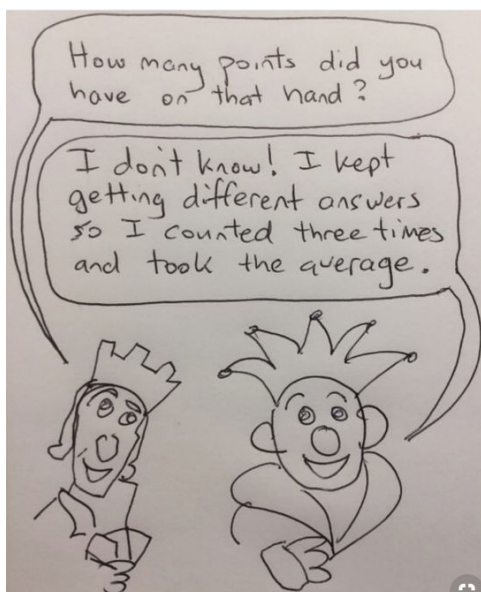 How many points did you
have on that hand?
I don't know! I kept
getting different answers
so I counted three times
and took the average.